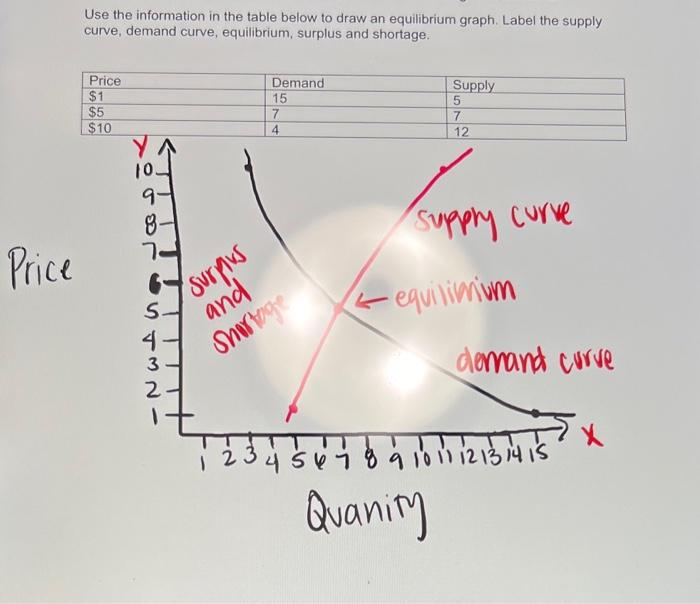 Use the information in the table below to draw an equilibrium graph. Label the supply
curve, demand curve, equilibrium, surplus and shortage.
Price Demand Supply
$1 15 5
$5 7 7
$10 4 12
Y
10
9
8
7
6
5
4
3
2
1
Price
surplus
and
shortage
supply curve
equilimium
demand curve
X
1 2 3 4 5 6 7 8 9 10 11 12 13 14 15
Quanity